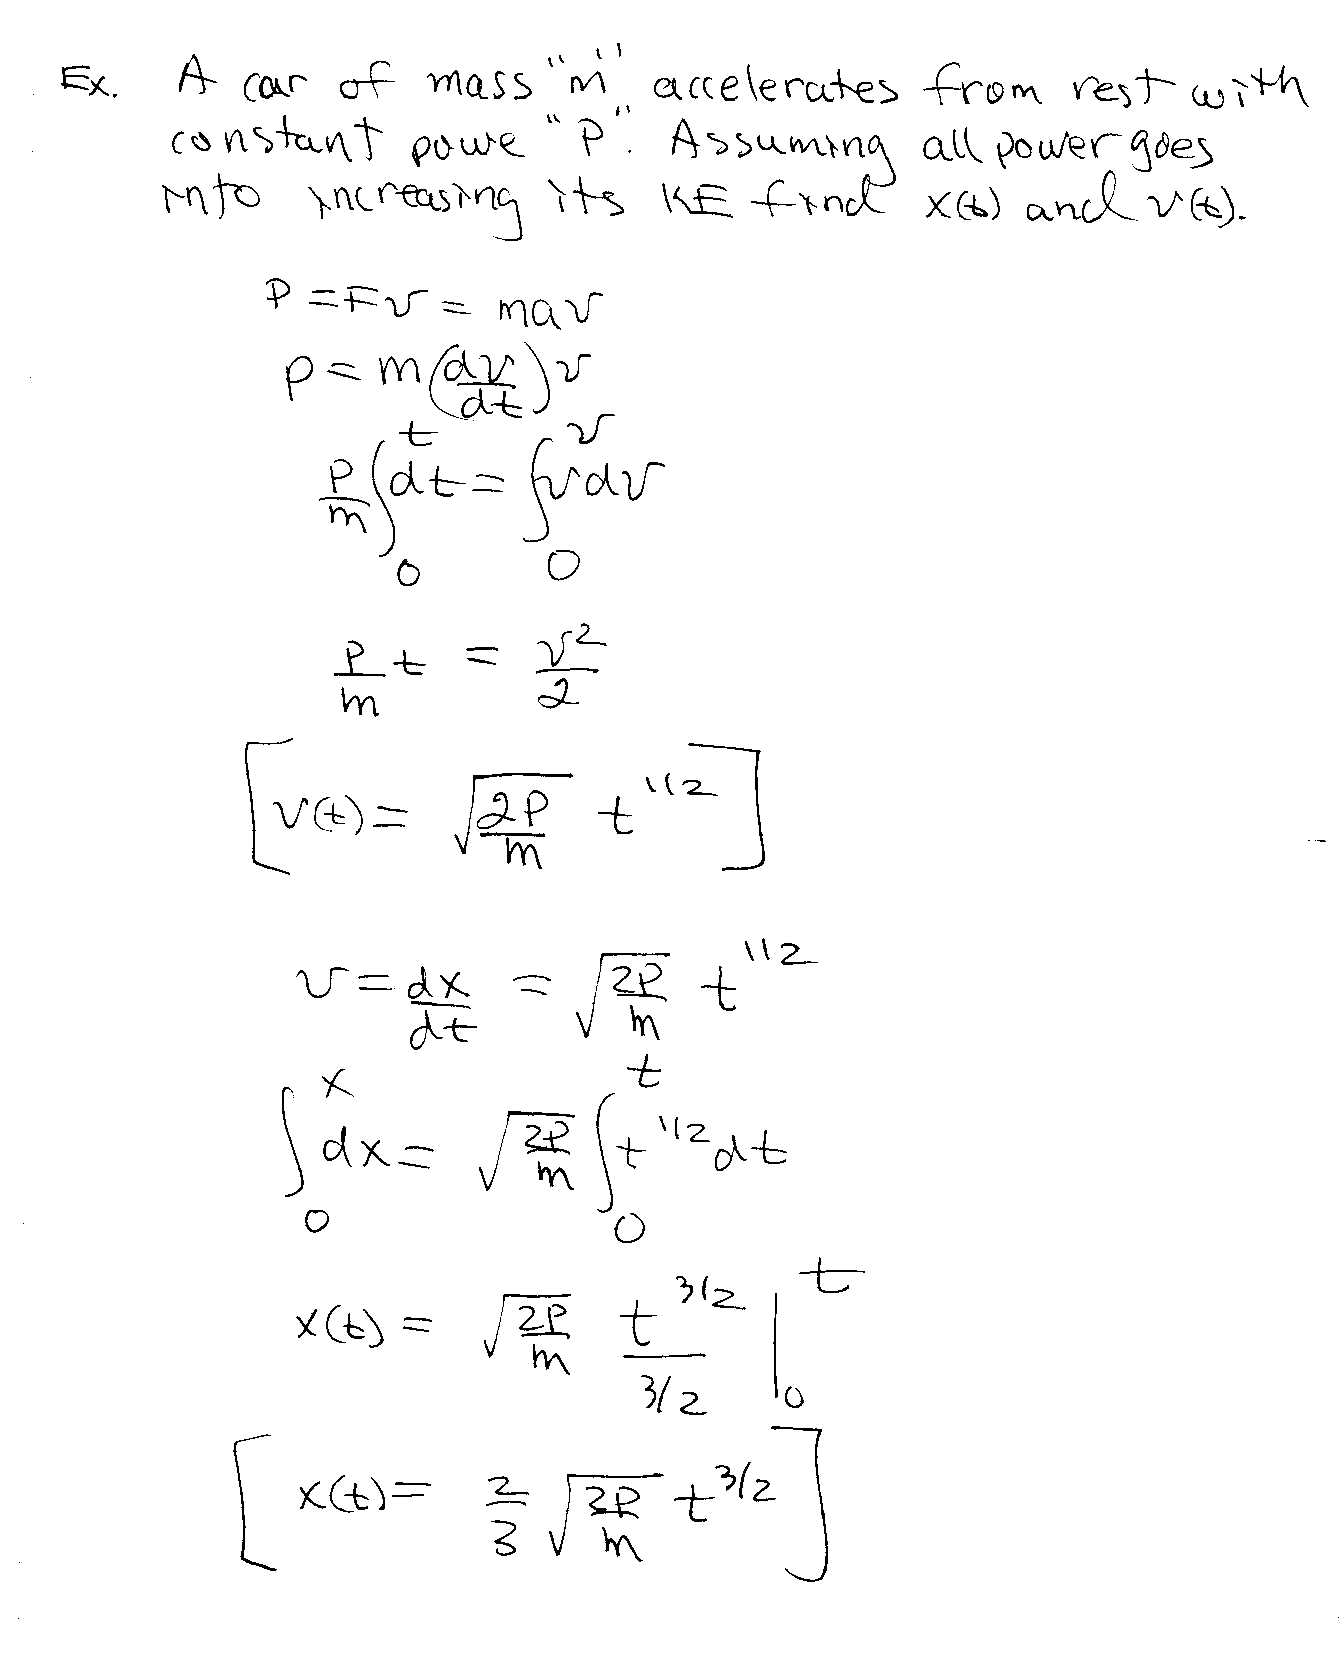 Ex. A car of mass "m" accelerates from rest with
constant powe "P". Assuming all power goes
into increasing its KE find x(t) and v(t).
P = Fv = mav
P = m(dv/dt)v
P/m ∫₀ᵗ dt = ∫₀ᵛ v dv
P/m t = v²/2
[v(t) = √(2P/m) t^1/2]
v = dx/dt = √(2P/m) t^1/2
∫₀ˣ dx = √(2P/m) ∫₀ᵗ t^1/2 dt
x(t) = √(2P/m) t^3/2 / 3/2 |₀ᵗ
[x(t) = 2/3 √(2P/m) t^3/2]